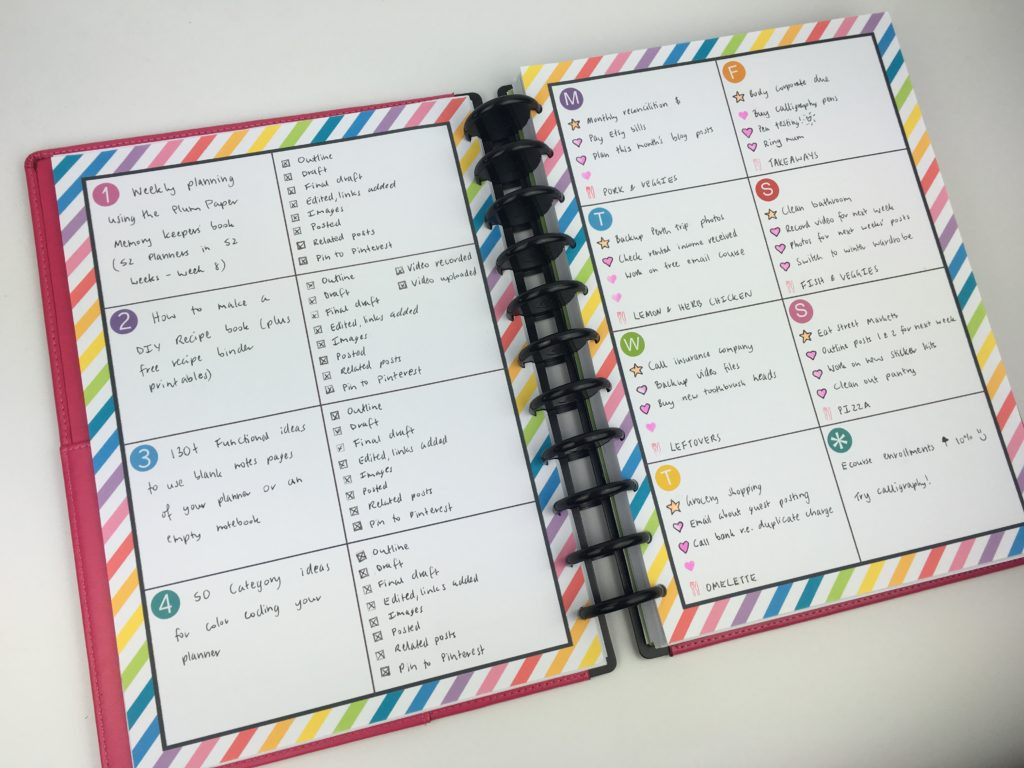 1 Weekly planning
using the Plum Paper
Memory keepers book
(52 Planners in 52
weeks - week 8)
Outline
Draft
Final draft
Edited, links added
Images
Posted
Related posts
Pin to Pinterest
2 How to make a
DIY Recipe book (plus
free recipe binder
printables)
Outline
Draft
Final draft
Edited, links added
Images
Posted
Related posts
Pin to Pinterest
Video recorded
Video uploaded
3 130+ Functional ideas
to use blank notes pages
of your planner or an
empty notebook
Outline
Draft
Final draft
Edited, links added
Images
Posted
Related posts
Pin to Pinterest
4 50 Category ideas
for color coding your
planner
Outline
Draft
Final draft
Edited, links added
Images
Posted
Related posts
Pin to Pinterest
M
Monthly reconcilition &
Pay Etsy bills
Plan this month's blog posts
PORK & VEGGIES
T
Backup Perth trip photos
Check rental income received
Work on free email course
LEMON & HERB CHICKEN
W
Call insurance company
Backup video files
Buy new toothbrush heads
LEFTOVERS
T
Grocery shopping
Email about guest posting
Call bank r.e. duplicate charge
OMELETTE
F
Body corporate due
Buy calligraphy pens
Pen testing!
Ring mum
TAKEAWAYS
S
Clean bathroom
Record video for next week
Photos for next weeks' posts
Switch to winter wardrobe
FISH & VEGGIES
S
Eat street markets
Outline posts 1 & 2 for next week
Work on new sticker kits
Clean out pantry
PIZZA
*
Ecourse enrollments ↑ 10% :)
Try calligraphy!